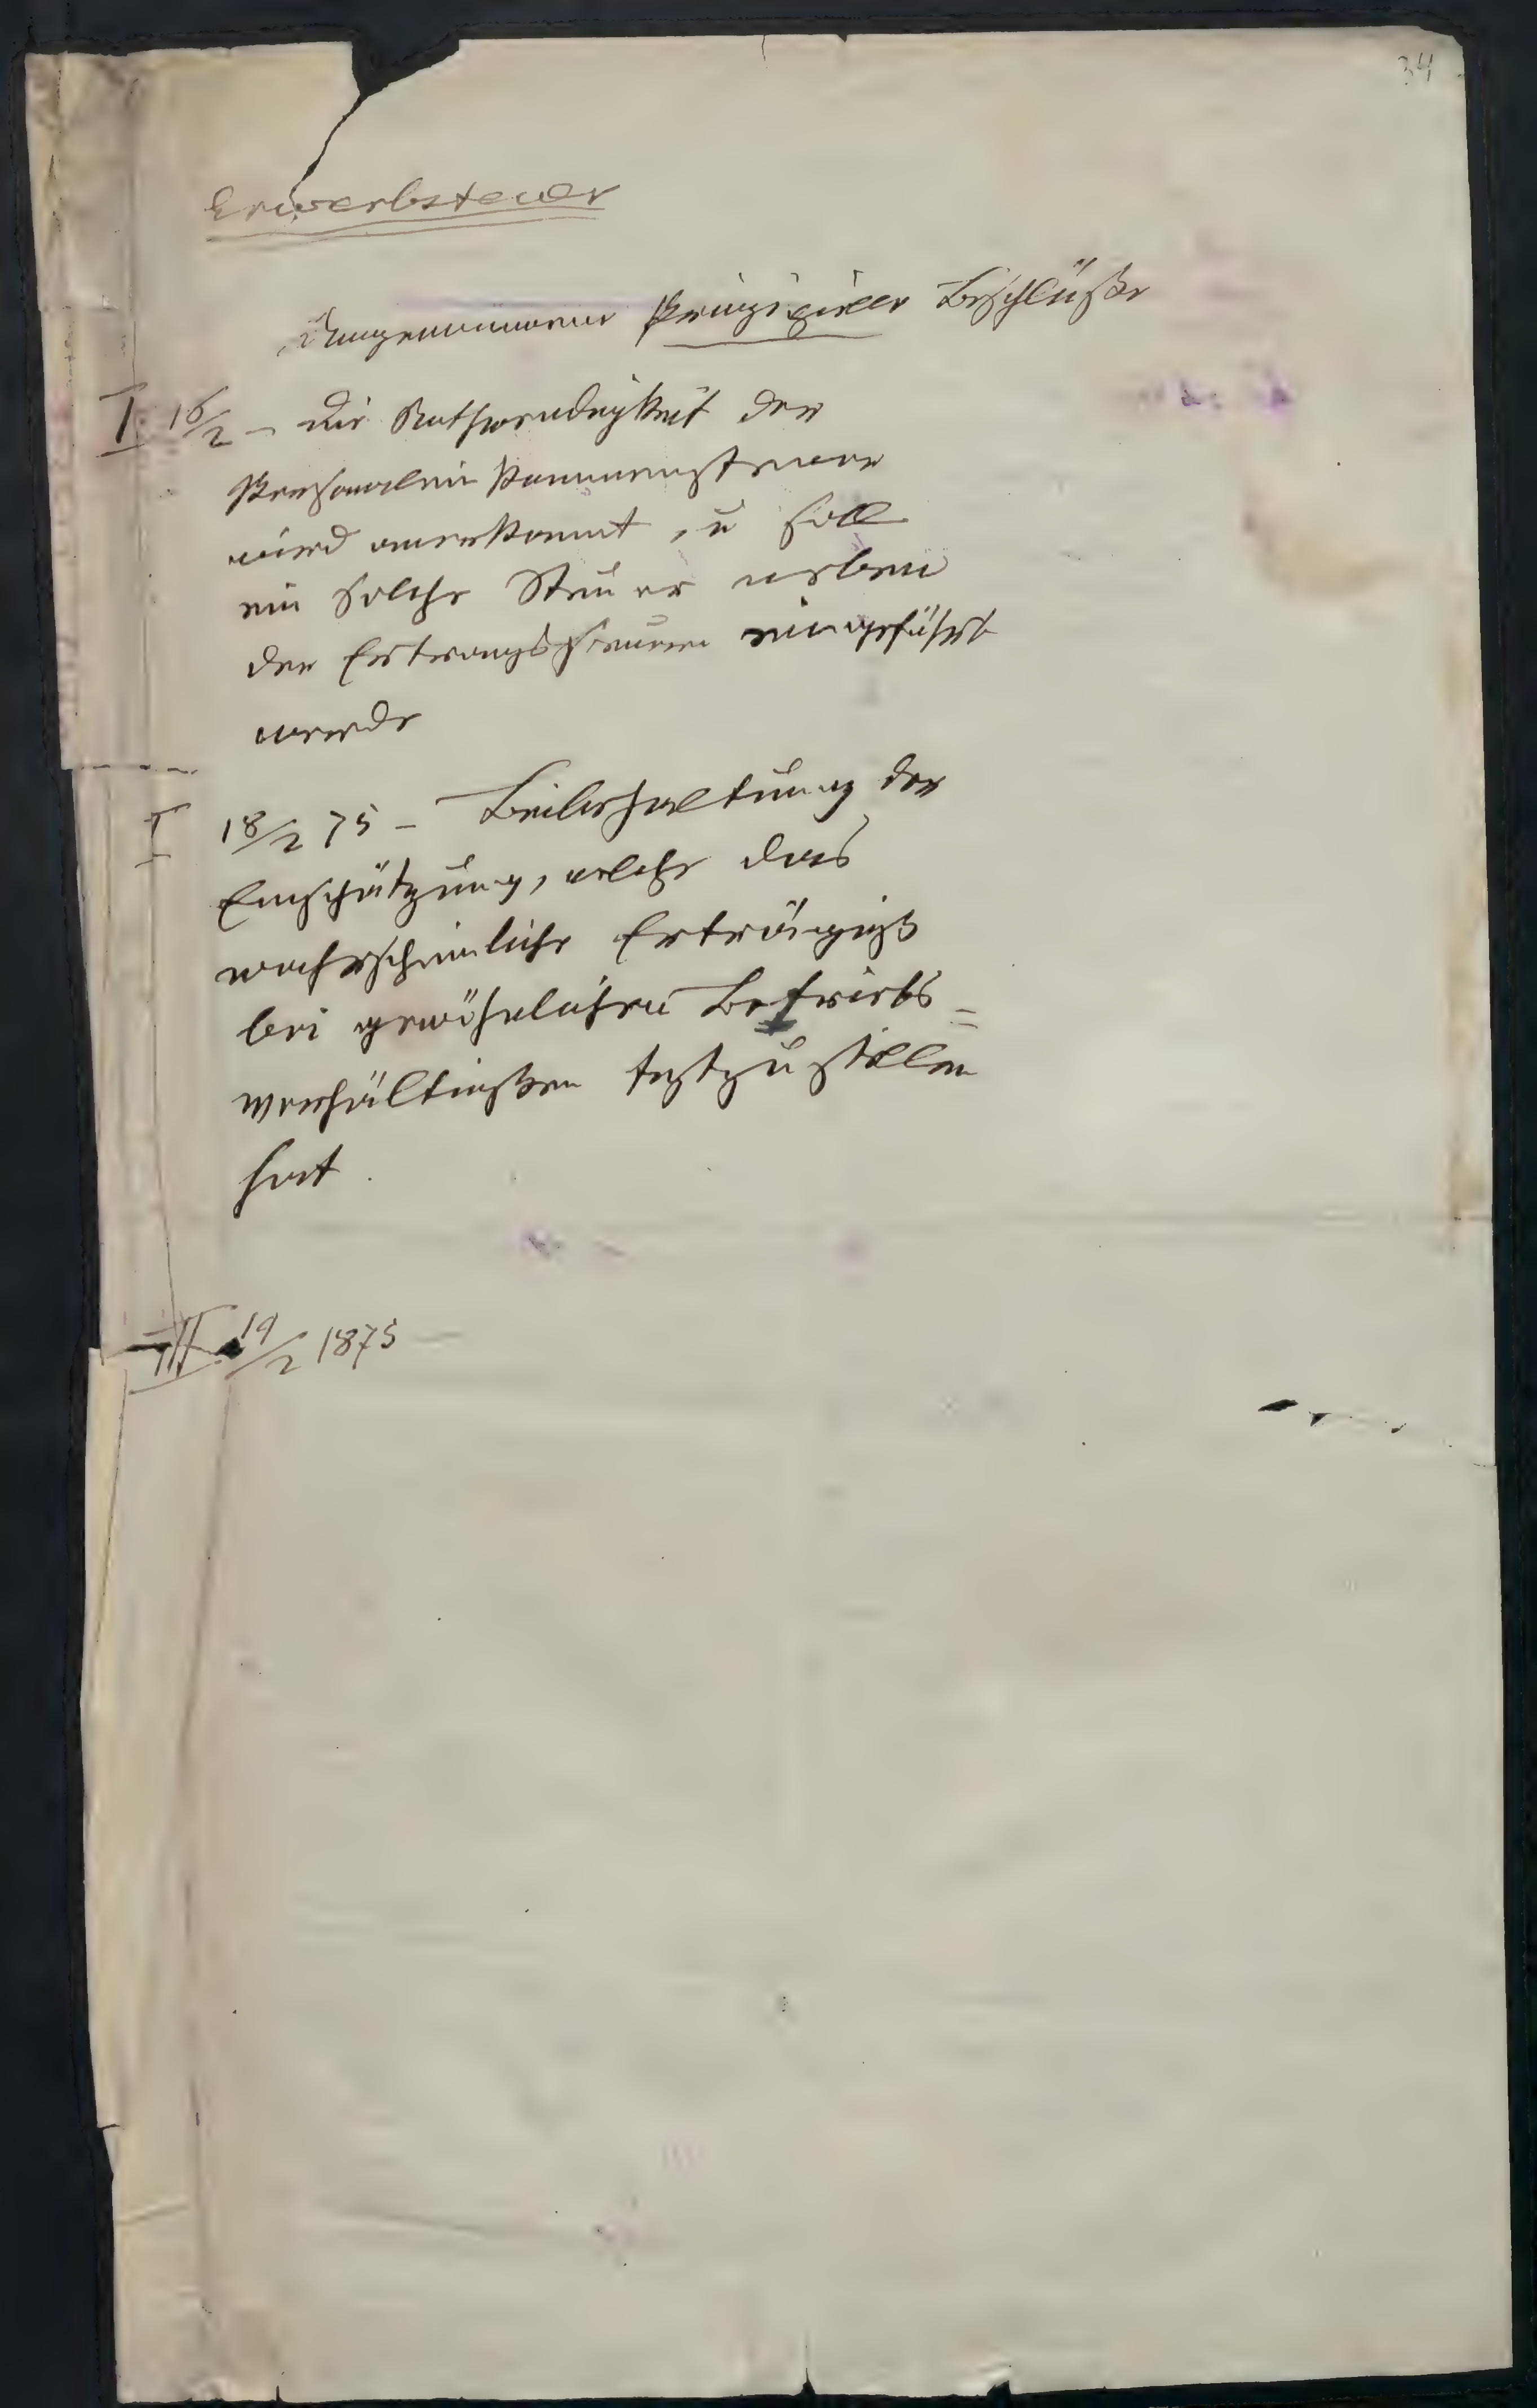 34
Erwerbsteuer
Angenommene Prinzipielle Beschlüße
I. 16/2 – die Nothwendigkeit der
Personaleinkommensteuer
wird anerkannt, u soll
ein solche Steuer neben
den Ertragssteuern eingeführt
werde
I 18/2 75 – Beibehaltung der
Einschätzung, welche das
wahrscheinliche Erträgniß
bei gewöhnlichen Betriebs=
verhältnißen festzustellen
hat.
III 19/2 1875